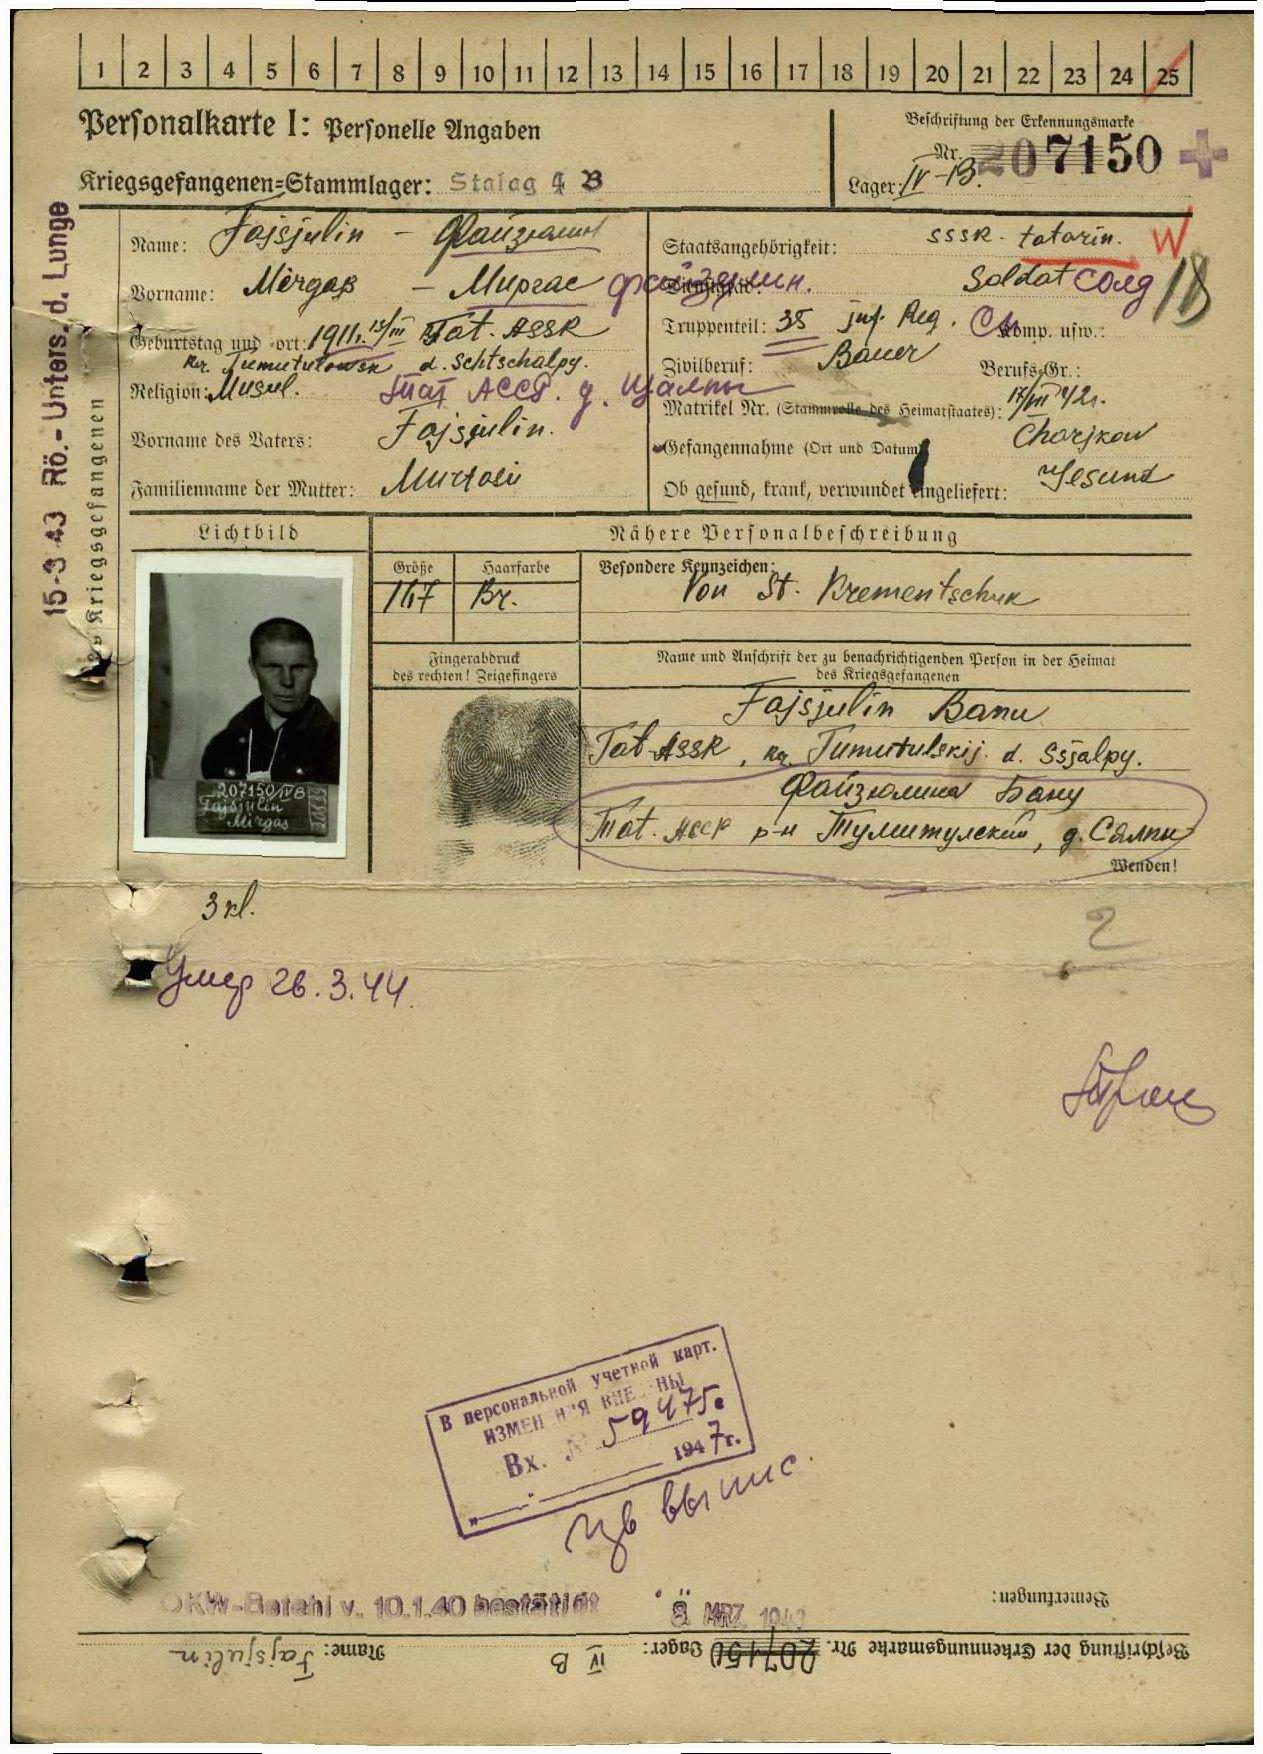 1 2 3 4 5 6 7 8 9 10 11 12 13 14 15 16 17 18 19 20 21 22 23 24 25
Personalkarte I: Personelle Angaben
Beschriftung der Erkennungsmarke
Nr. 207150
Kriegsgefangenen=Stammlager: Stalag 4 B
Lager: IV-B.
15-3-43 Rö.-Unters. d. Lunge
Kriegsgefangenen
Name: Fajsjulin – Файзюлин
Staatsangehörigkeit: SSSR. tatarin. W
Vorname: Mirgas – Миргас Файзулин.
Soldat солд 18
Geburtstag und -ort: 1911. 15/III Tat. ASSR
Truppenteil: 35 inf. Reg. Komp. usw.:
d. Schtschalpy.
Zivilberuf: Bauer Berufs-Gr.:
Religion: Musul. Тат АССР. д. Щалпы
Matrikel Nr. (Stammrolle des Heimatstaates): 17/III 42.
Vorname des Vaters: Fajsjulin.
Gefangennahme (Ort und Datum) Charjkow
Familienname der Mutter:
Ob gesund, krank, verwundet eingeliefert: Gesund
Lichtbild
Nähere Personalbeschreibung
Größe Haarfarbe
Besondere Kennzeichen:
167 Br.
Von St. Krementschuk
Fingerabdruck
des rechten! Zeigefingers
Name und Anschrift der zu benachrichtigenden Person in der Heimat
des Kriegsgefangenen
207150 IV B
Fajsjulin
Mirgas
Fajsjulin Banu
Tat ASSR, Tumutulskij d. Ssjalpy.
Файзюлина Бану
Тат. Асср р-н Тумитулский, д. Сялпы
Wenden!
3 kl.
2
Умер 26.3.44
В персональной учетной карт.
ИЗМЕНЕНИЯ ВНЕСЕНЫ
Вх. № 59475с
1947г.
OKW-Befehl v. 10.1.40 bestätigt
8 MRZ. 1943
Bemerkungen:
Beschriftung der Erkennungsmarke Nr. 207150 Lager: IV B Name: Fajsjulin